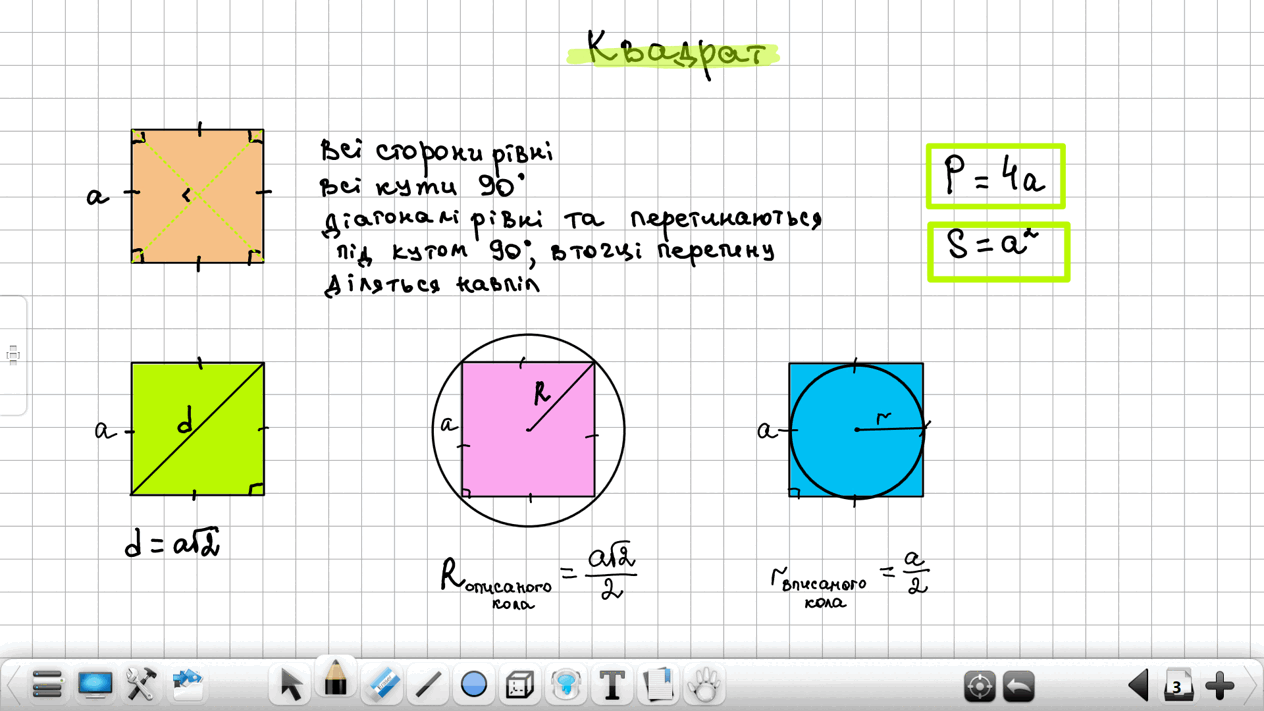 Квадрат
Всі сторони рівні
Всі кути 90°
Діагоналі рівні та перетинаються
під кутом 90°, в точці перетину
діляться навпіл
P = 4a
S = a²
a
a
d
a
R
a
r
d = a√2
R описаного кола = a√2/2
r вписаного кола = a/2
3